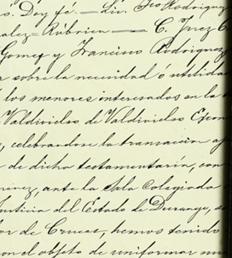 s. Doy fé — Lic. Fco Rodriguez
alez - Rúbrica — C. Juez C
Gomez y Francisco Rodriguez
a sobre la necesidad ó utilidad
los menores interesados en la t
Valdivielso de Valdivielso
y celebrandose la transaccion
de dicha testamentaria, con
ante la Sala Colegiada
usticia del Estado de Durango, d
or de Cruces, hemos tenido
on el objeto de uniformar nu